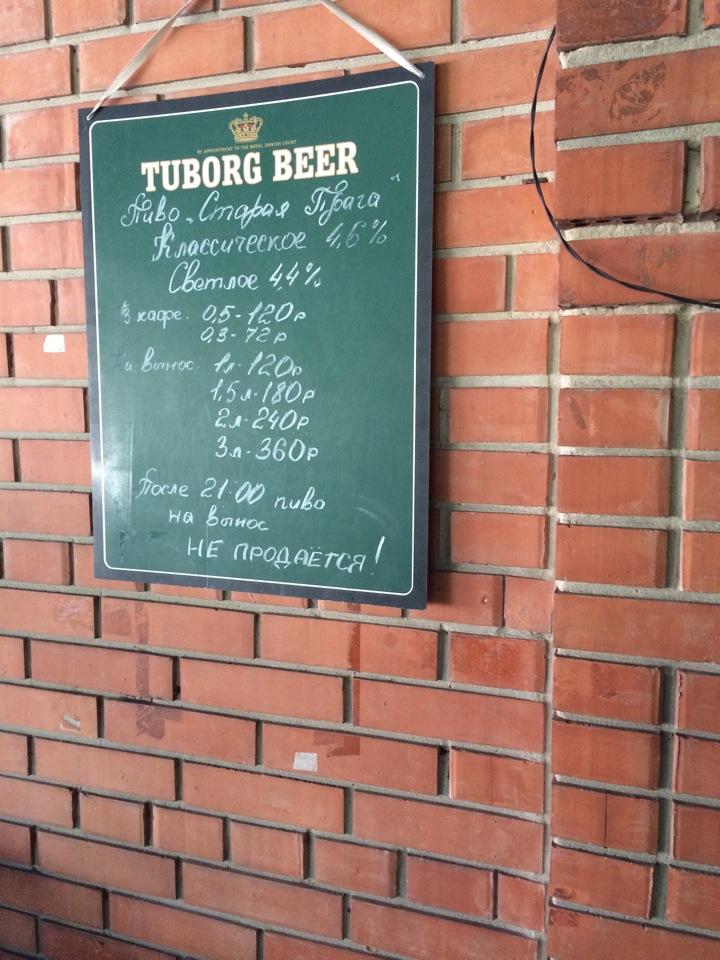 BY APPOINTMENT TO THE ROYAL DANISH COURT
TUBORG BEER
Пиво „Старая Прага"
Классическое 4,6%
Светлое 4,4%
В кафе: 0,5 - 120р
0,3 - 72р
на вынос: 1л - 120р
1,5л - 180р
2л - 240р
3л - 360р
После 21:00 пиво
на вынос
НЕ ПРОДАЁТСЯ!